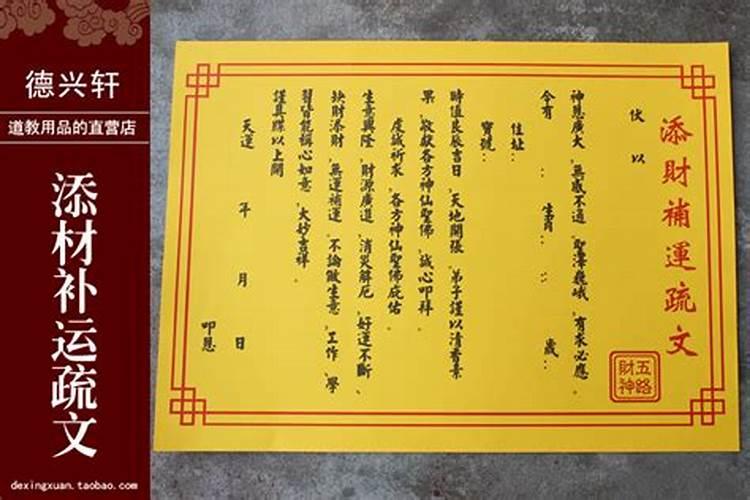 德兴轩
道教用品的直营店
添材补运疏文
dexingxuan.taobao.com
添財補運疏文
五路
財神
伏以
神恩廣大,無感不通,聖澤巍峨,有求必應。
今有 : 生肖: : 歲:
住址:
寶號:
時值良辰吉日,天地開張,弟子謹以清香素
果,敬獻各方神仙聖佛,誠心叩拜。
虔誠祈求,各方神仙聖佛庇佑。
生意興隆,財源廣進,消災解厄,好運不斷、
缺財添財,無運補運,不論做生意,工作、學
習皆能稱心如意,大妙吉祥。
謹具牒以上聞
天運 年 月 日
叩恩